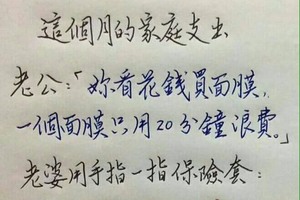 這個月的家庭支出
老公:「妳看花錢買面膜,
一個面膜只用20分鐘浪費。」
老婆用手指一指保險套: